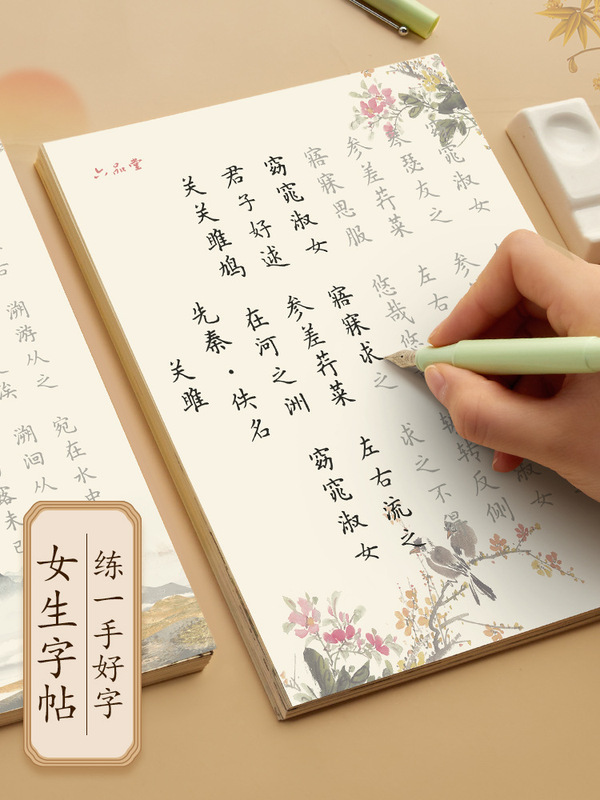 六品堂
关雎
先秦·佚名
关关雎鸠
在河之洲
窈窕淑女
君子好逑
参差荇菜
左右流之
窈窕淑女
寤寐求之
求之不得
寤寐思服
悠哉悠
转转反侧
参差荇菜
左右
淑女
琴瑟友之
参
窈窕淑女
溯游从之
溯洄从之
宛在水中
未已
练一手好字
女生字帖